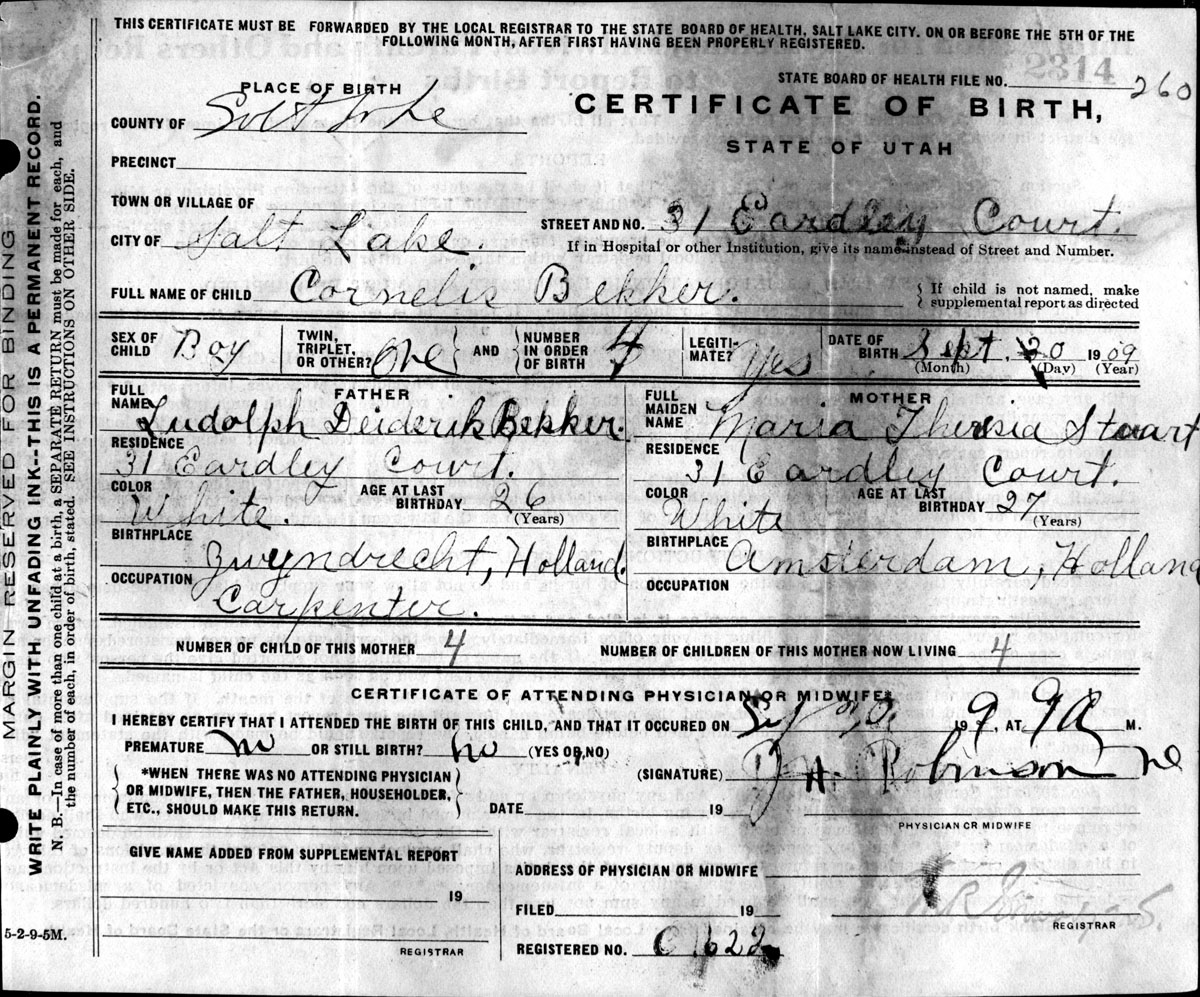 THIS CERTIFICATE MUST BE FORWARDED BY THE LOCAL REGISTRAR TO THE STATE BOARD OF HEALTH, SALT LAKE CITY. ON OR BEFORE THE 5TH OF THE
FOLLOWING MONTH, AFTER FIRST HAVING BEEN PROPERLY REGISTERED.
MARGIN RESERVED FOR BINDING
WRITE PLAINLY WITH UNFADING INK--THIS IS A PERMANENT RECORD.
N. B.—In case of more than one child at a birth, a SEPARATE RETURN must be made for each, and
the number of each, in order of birth, stated. SEE INSTRUCTIONS ON OTHER SIDE.
2314
STATE BOARD OF HEALTH FILE NO. 260
PLACE OF BIRTH
CERTIFICATE OF BIRTH,
COUNTY OF Salt Lake
STATE OF UTAH
PRECINCT
TOWN OR VILLAGE OF
STREET AND NO. 31 Eardley Court.
CITY OF Salt Lake.
If in Hospital or other Institution, give its name instead of Street and Number.
FULL NAME OF CHILD Cornelis Bekker.
If child is not named, make
supplemental report as directed
SEX OF CHILD Boy
TWIN, TRIPLET, OR OTHER? One AND NUMBER IN ORDER OF BIRTH 4
LEGITI-MATE? Yes
DATE OF BIRTH Sept. 20 1909
(Month) (Day) (Year)
FATHER
FULL NAME Ludolph Deiderik Bekker.
RESIDENCE
31 Eardley Court.
COLOR White. AGE AT LAST BIRTHDAY 26
(Years)
BIRTHPLACE
Zwyndrecht, Holland.
OCCUPATION
Carpenter.
MOTHER
FULL MAIDEN NAME Maria Theresia Stuart
RESIDENCE
31 Eardley Court.
COLOR White AGE AT LAST BIRTHDAY 27
(Years)
BIRTHPLACE
Amsterdam, Holland
OCCUPATION
NUMBER OF CHILD OF THIS MOTHER 4
NUMBER OF CHILDREN OF THIS MOTHER NOW LIVING 4
CERTIFICATE OF ATTENDING PHYSICIAN OR MIDWIFE*
I HEREBY CERTIFY THAT I ATTENDED THE BIRTH OF THIS CHILD, AND THAT IT OCCURED ON 20 199, AT 9A M.
PREMATURE no OR STILL BIRTH? no (YES OR NO)
*WHEN THERE WAS NO ATTENDING PHYSICIAN
OR MIDWIFE, THEN THE FATHER, HOUSEHOLDER,
ETC., SHOULD MAKE THIS RETURN.
(SIGNATURE) H. Robinson
DATE 19
PHYSICIAN OR MIDWIFE
GIVE NAME ADDED FROM SUPPLEMENTAL REPORT
19
REGISTRAR
ADDRESS OF PHYSICIAN OR MIDWIFE
FILED 19
REGISTRAR
REGISTERED NO. C 1622
5-2-9-5M.